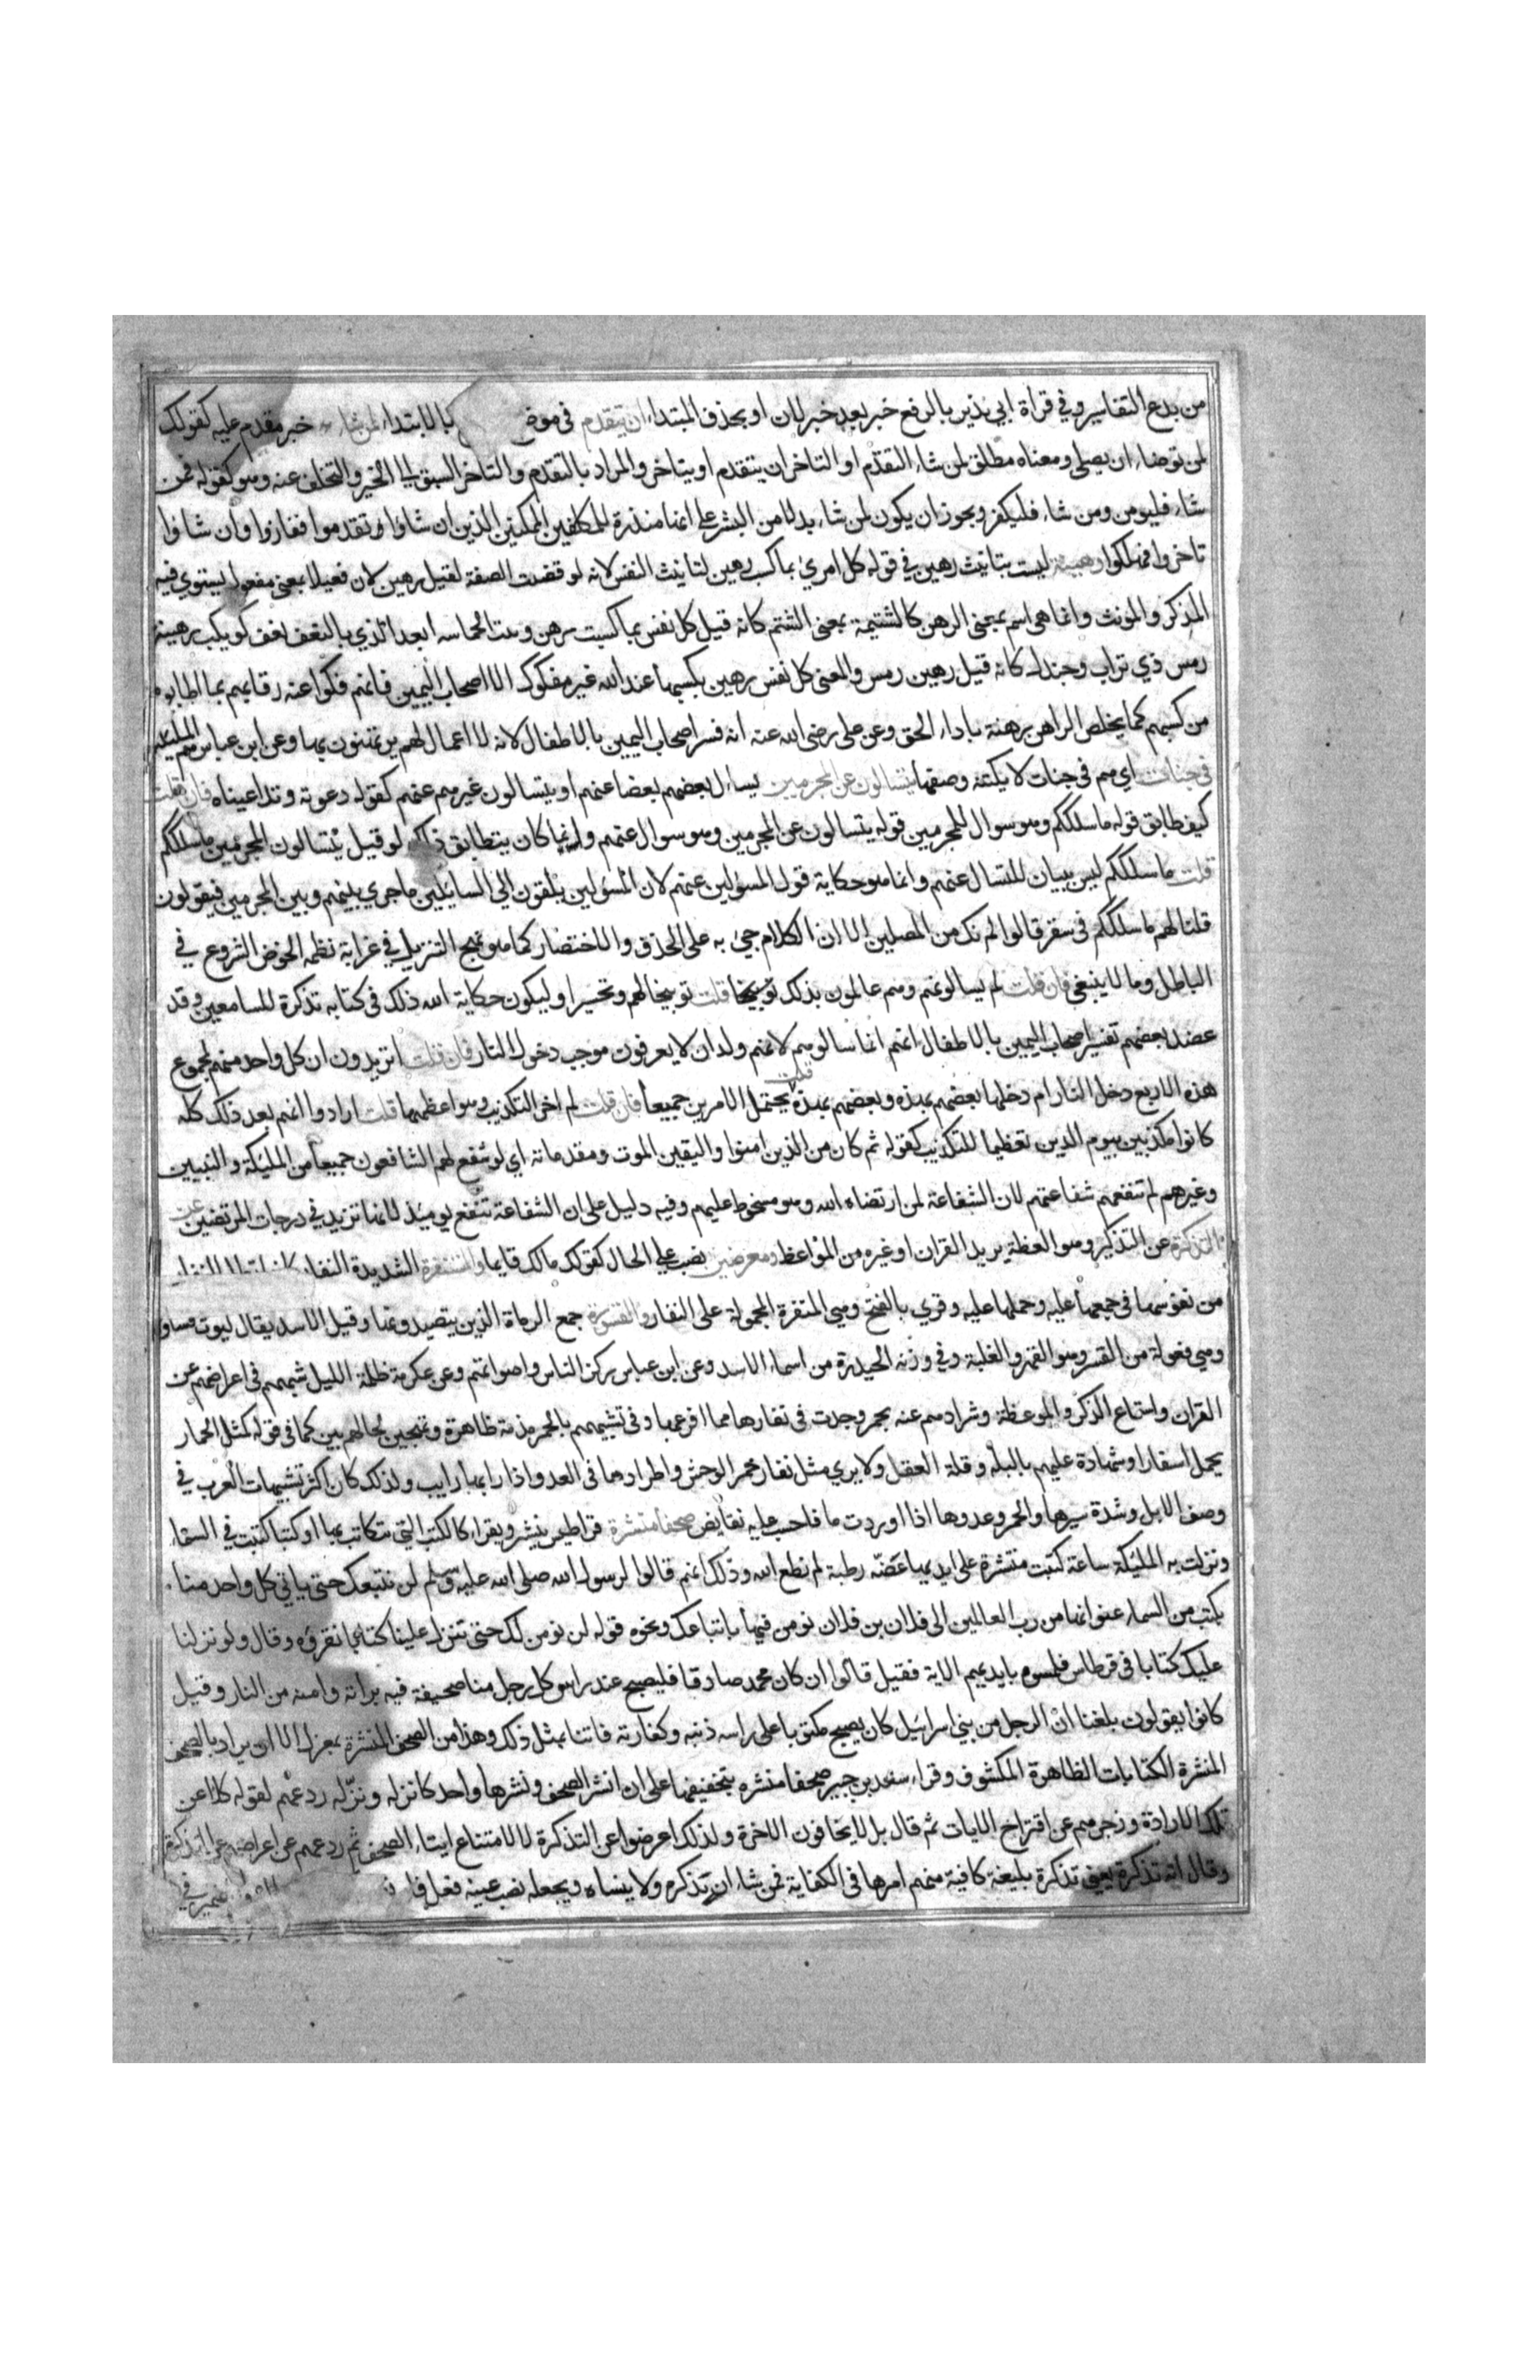 من بدع التفاسير وفي قراة ابي نذير بالرفع خبر بعد خبر لان او بحذف المبتداء ان يتقدم في موضع بالابتداء لمن شاء خبر مقدم عليه كقولك
لمن توضاء ان يصلي ومعناه مطلق لمن شاء التقدم او التاخر ان يتقدم او يتاخر والمراد بالتقدم والتاخر السبق الى الخير والتخلف عنه وهو كقوله فمن
شاء فليومن ومن شاء فليكفر ويجوز ان يكون لمن شاء بدلا من البشر على انها منذرة للمكلفين الممكنين الذين ان شاوا تقدموا ففازوا وان شاوا
تاخروا فهلكوا رهينة ليست بتانيث رهين في قوله كل امرئ بما كسب رهين لتانيث النفس لانه لو قصدت الصفة لقيل رهين لان فعيلا بمعنى مفعول يستوي فيه
المذكر والمونث وانما هي اسم بمعنى الرهن كالشتيمة بمعنى الشتم كانه قيل كل نفس بما كسبت رهن ومنه بيت الحماسه ابعد الذي بالنعف نعف كويكب رهينة
رمس ذي تراب وجندل كانه قيل رهين رمس والمعنى كل نفس رهين بكسبها عند الله غير مفكوك الا اصحاب اليمين فانهم فكوا عنه رقابهم بما اطابوه
من كسبهم كما يخلص الراهن رهنه باداء الحق وعن علي رضي الله عنه انه فسر اصحاب اليمين بالاطفال لانه لا اعمال لهم يرتهنون بها وعن ابن عباس هم المليكة
في جنات اي هم في جنات لا يكتنه وصفها يتسالون عن المجرمين يساءل بعضهم بعضا عنهم او يتسالون غيرهم عنهم كقوله دعوته وتداعيناه فان قلت
كيف طابق قوله ماسلككم وهو سوال للمجرمين قوله يتسالون عن المجرمين وهو سوال عنهم وانما كان يتطابق ذلك لو قيل يتسالون المجرمين ماسلككم
قلت ماسلككم ليس ببيان للتسال عنهم وانما هو حكاية قول المسؤلين عنهم لان المسؤلين يلقون الى السائلين ماجري بينهم وبين المجرمين فيقولون
قلنا لهم ماسلككم في سقر قالوا لم نك من المصلين الا ان الكلام جئ به على الحذف والاختصار كما هو نهج التنزيل في غرابة نظمه الخوض الشروع في
الباطل وما لا ينبغي فان قلت لم يسالونهم وهم عالمون بذلك قلت توبيخا لهم وتحسيرا وليكون حكاية الله ذلك في كتابه تذكرة للسامعين وقد
عضد بعضهم تفسير اصحاب اليمين بالاطفال انهم انما سالوهم لانهم ولدان لا يعرفون موجب دخول النار فان قلت اتريدون ان كل واحد منهم لمجموع
هذه الاربع دخل النار ام دخلها بعضهم بهذه وبعضهم بهذه قلت يحتمل الامرين جميعا فان قلت لم اخر التكذيب وهو اعظمها قلت ارادوا انهم بعد ذلك كله
كانوا مكذبين بيوم الدين تعظيما للتكذيب كقوله ثم كان من الذين امنوا واليقين الموت ومقدماته اي لو شفع لهم الشافعون جميعا من المليكة والنبيين
وغيرهم لم تنفعهم شفاعتهم لان الشفاعة لمن ارتضاه الله وهو مسخوط عليهم وفيه دليل على ان الشفاعة تنفع يوميذ لانها تزيد في درجات المرتضين عن
التذكرة عن التذكير وهو العظة يريد القران او غيره من المواعظ ومعرضين نصب على الحال كقولك مالك قايما والمستنفرة الشديدة النفار
من نفوسها في جمعها عليه وحملها عليه وقري بالفتح وهي المنفرة المحمولة على النفار والقسورة جمع الرماة الذين يتصيدونها وقيل الاسد يقال ليوث قساور
وهي فعولة من القسر وهو القهر والغلبة وفي وزنه الحيدرة من اسماء الاسد وعن ابن عباس ركز الناس واصواتهم وعن عكرمة ظلمة الليل شبههم في اعراضهم عن
القران واستماع الذكر والموعظة وشرادهم عنه بحمر وجدت في نفارها مما افزعها وفي تشبيههم بالحمر مذمة ظاهرة وتهجين لحالهم بين كما في قوله كمثل الحمار
يحمل اسفارا وشهادة عليهم بالبله وقلة العقل ولا يري مثل نفار حمر الوحش واطرادها في العدو اذا رابها رايب ولذلك كان اكثر تشبيهات العرب في
وصف الابل وشدة سيرها والحمر وعدوها اذا اوردت ما فاحسب عليه نقايض صحفا منشرة قراطيس ينشر ويقراء كالكتب التي يتكاتب بها او كتبا كتبت في السماء
ونزلت به المليكة ساعة كتبت منتشرة على ايديها غضه رطبة لم تطع الله وذلك انهم قالوا لرسول الله صلى الله عليه وسلم لن نتبعك حتى ياتي كل واحد منا
بكتب من السماء عنوانها من رب العالمين الى فلان بن فلان نومن فيها باتباعك ونحوه قوله لن نومن لك حتى تنزل علينا كتابا نقروه وقال ولو نزلنا
عليك كتابا في قرطاس فلمسوه بايديهم الاية فقيل قالوا ان كان محمد صادقا فليصبح عند راس كل رجل منا صحيفة فيه براته وامنه من النار وقيل
كانوا يقولون بلغنا ان الرجل من بني اسرايل كان يصبح مكتوبا على راسه ذنبه وكفارته فاتنا بمثل ذلك وهذا من الصحف المنشرة بمعزل الا ان يراد بالصحف
المنشرة الكتابات الظاهرة المكشوف وقراء سعيد بن جبير صحفا منشره بتخفيفها على ان انشر الصحف ونشرها واحد كانزله ونزله ردعهم لقوله كلا عن
تلك الارادة وزجرهم عن اقتراح الايات ثم قال بل لا يخافون الاخرة ولذلك اعرضوا عن التذكرة لا لامتناع ايتاء الصحف ثم ردعهم عن اعراضهم عن التذكرة
وقال انه تذكرة يعني تذكرة بليغة كافية منهم امرها في الكفاية فمن شاء ان تذكره ولا ينساه ويجعله نصب عينه فعل